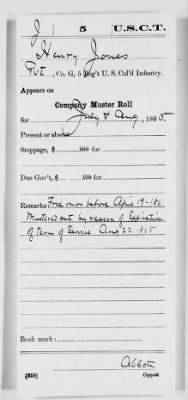 J | 5 | U.S.C.T.
Henry Jones
Pvt, Co. G, 5 Reg't U. S. Col'd Infantry.
Appears on
Company Muster Roll
for July & Aug, 1865.
Present or absent
Stoppage, $ 100 for
Due Gov't, $ 100 for
Remarks: Free on or before April 19-1861
Mustered out by reason of Expiration
of term of Service Aug 22 1865
Book mark:
Abbott
(358) Copyist